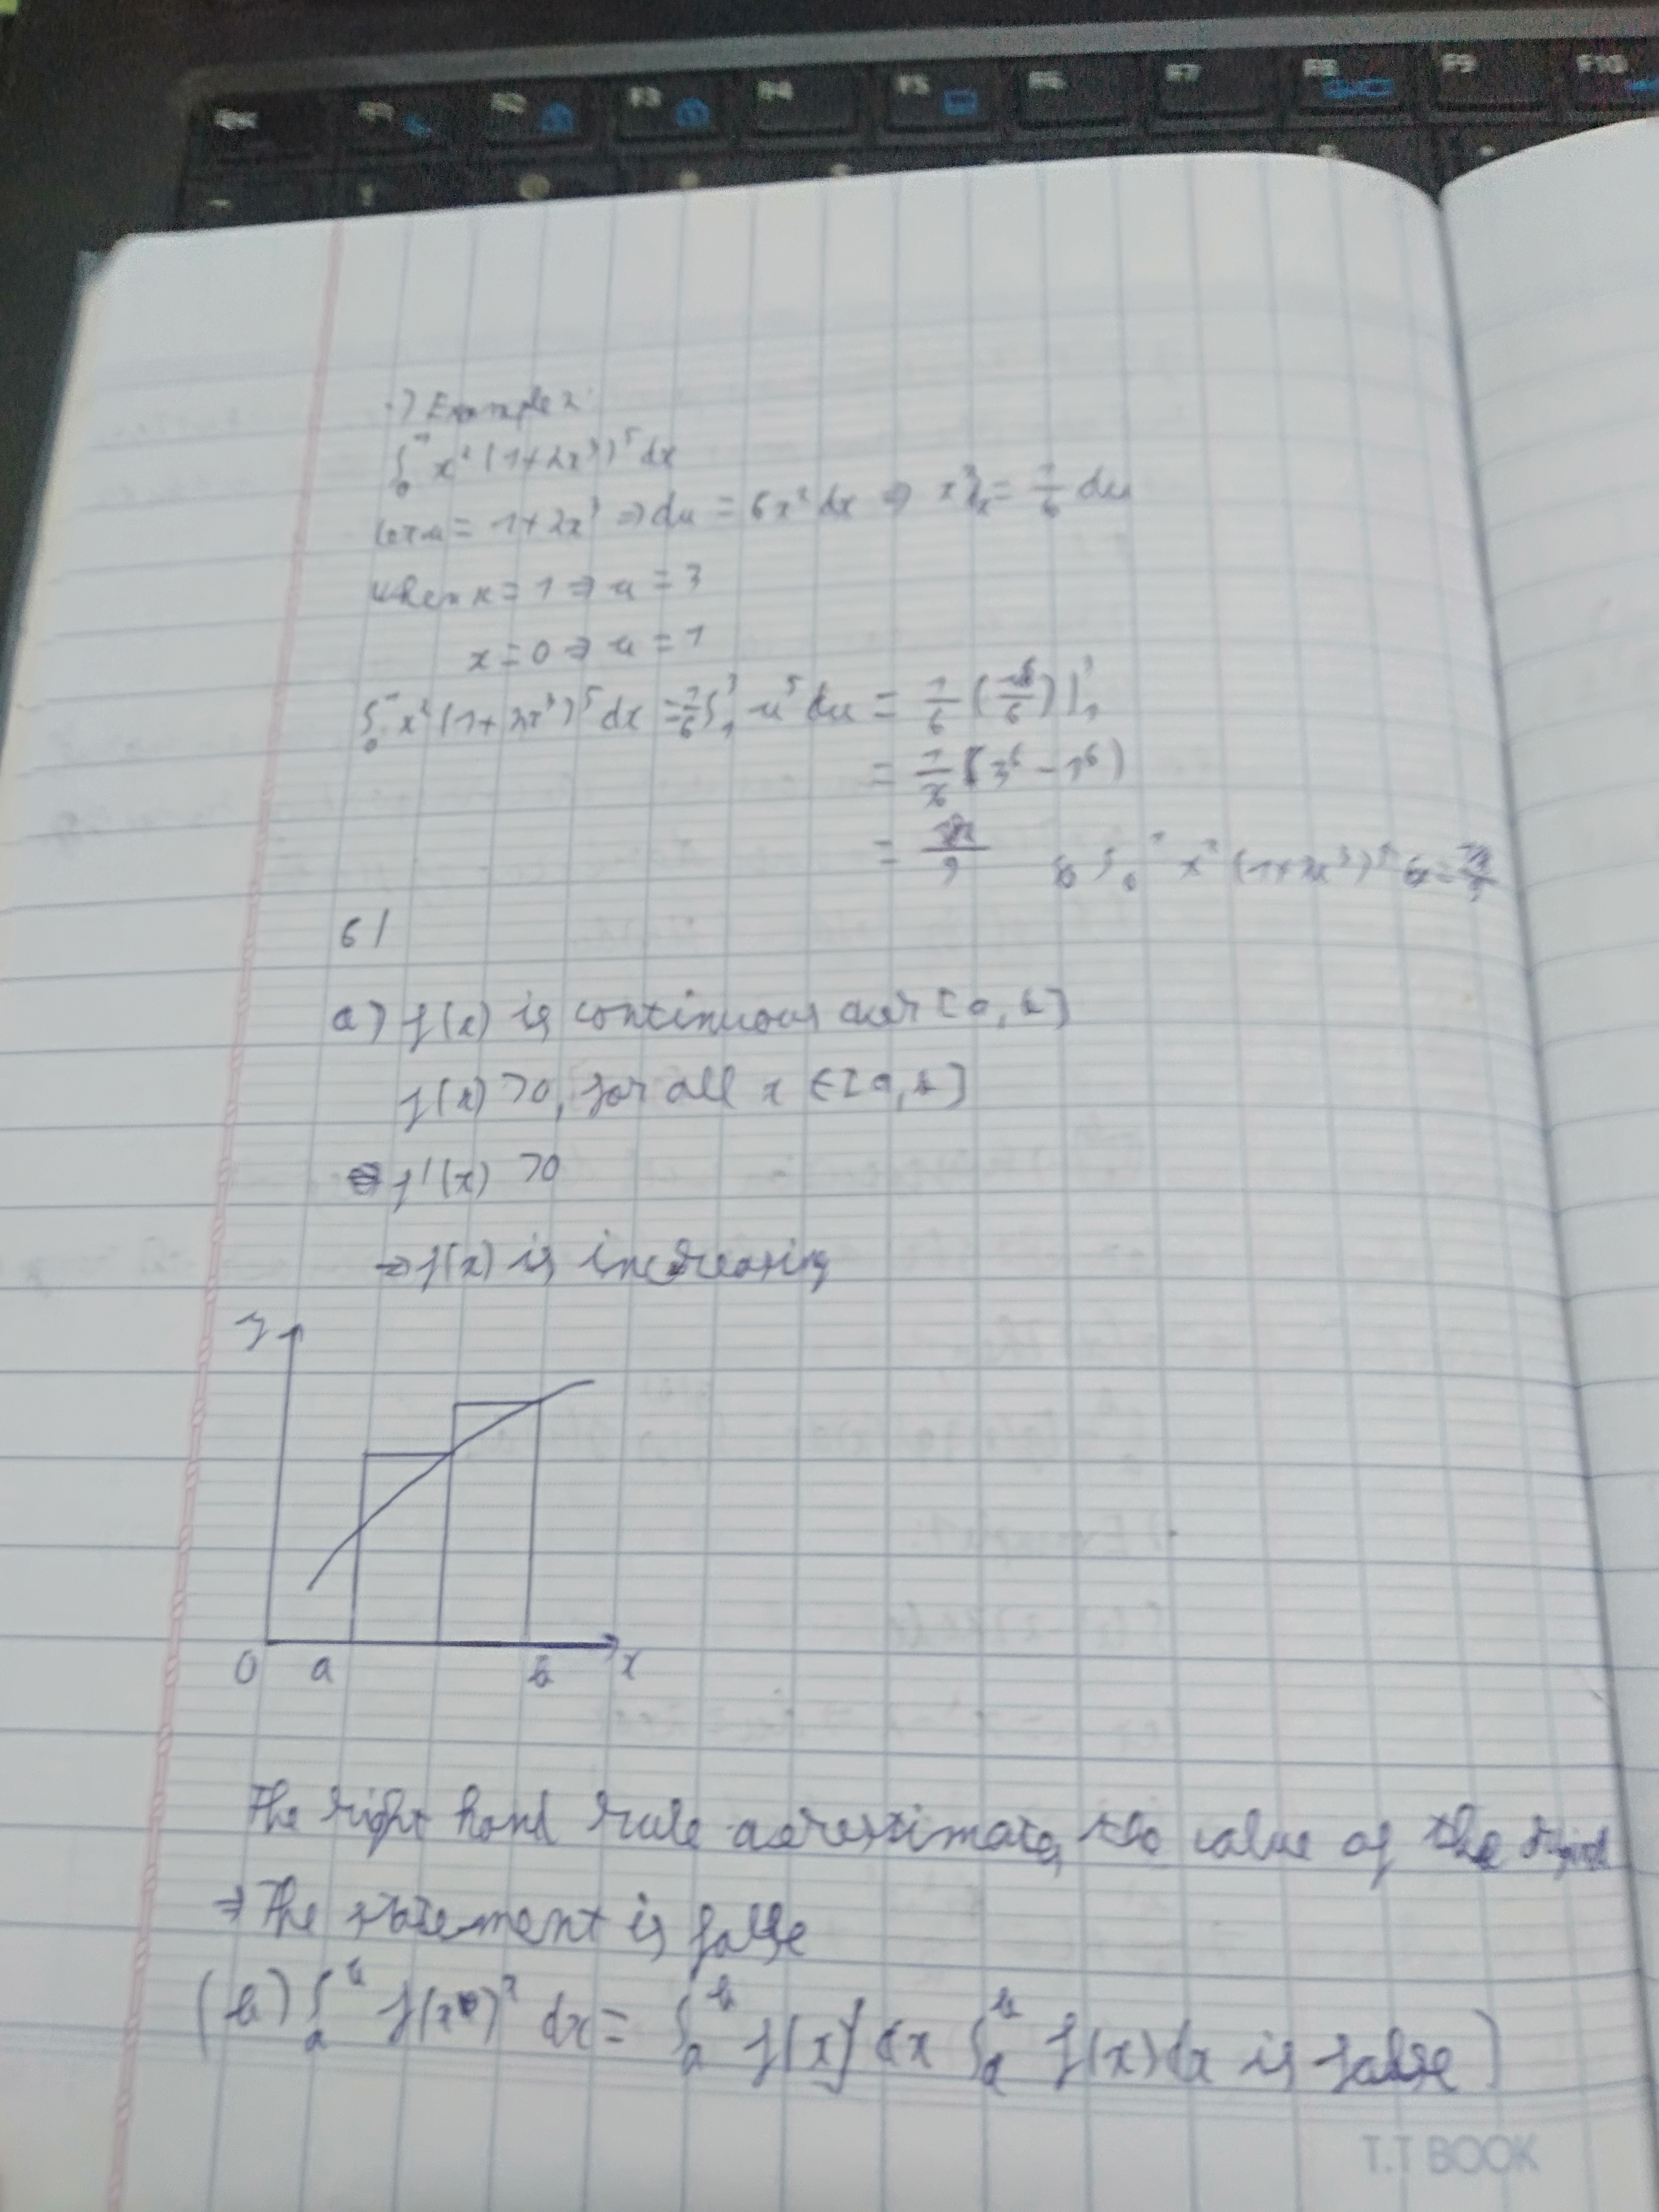 Esc F1 F2 F3 F4 F5 F6 F7 F8 F9 F10
·) Example 2:
∫₀¹ x² (1+2x³)⁵ dx
Let u = 1+2x³ ⇒ du = 6x² dx ⇒ x² dx = 1/6 du
When x = 1 ⇒ u = 3
x = 0 ⇒ u = 1
∫₀¹ x² (1+2x³)⁵ dx = 1/6 ∫₁³ u⁵ du = 1/6 (u⁶/6) |₁³
= (3⁶ - 1⁶)
= /9 ∫₀¹ x² (1+2x³)⁵
6/
a) f(x) is continuous over [a, b]
f(x) >0, for all x ∈ [a, b]
f'(x) >0
⇒ f(x) is increasing
y
0 a b x
The right hand rule overestimates the value of the
⇒ The statement is false
(b) ∫ₐᵇ f(x)² dx = ∫ₐᵇ f(x) dx ∫ₐᵇ f(x) dx is false
T.T BOOK